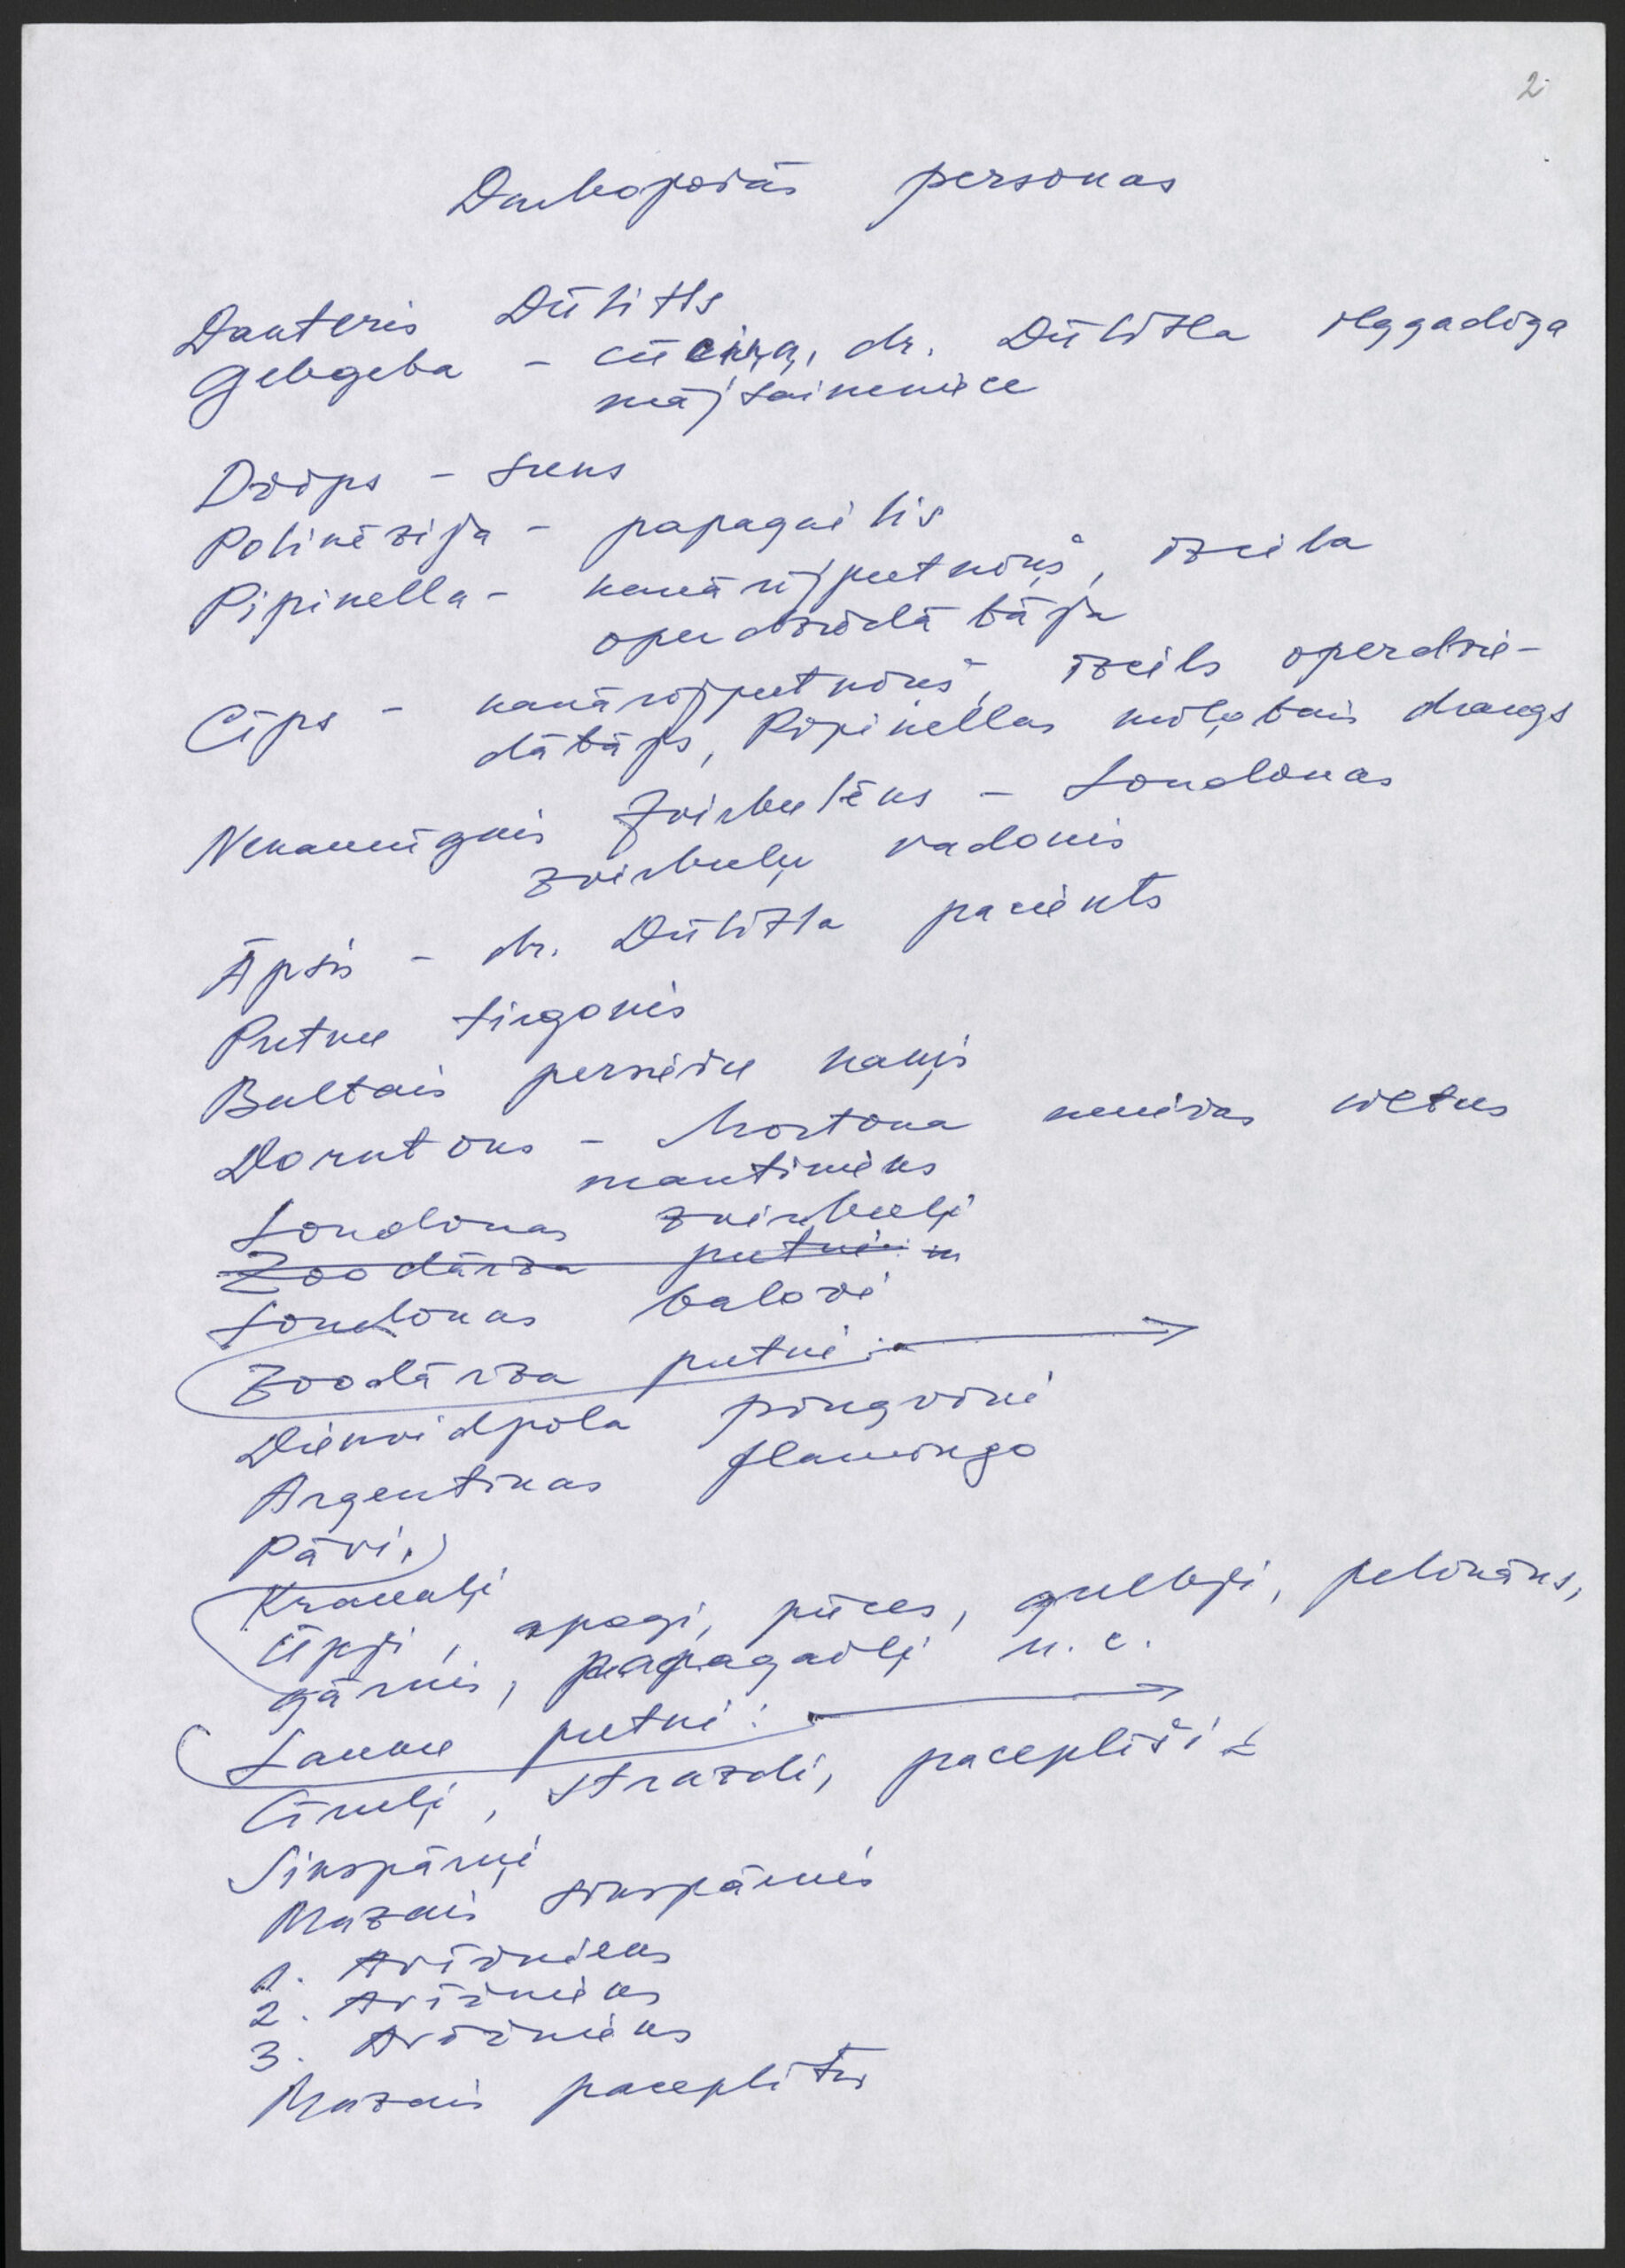 2
Darbojošās personas
Dakteris Dūlitls
Gebgeba - cūciņa, dr. Dūlitla ilggadīga
mājsaimniece
Džips - suns
Polinēzija - papagailis
Pipinella - kanārijputniņš, izcila
operdziedātāja
Cīps - kanārijputniņš, izcils operdzie-
dātājs, Pipinellas mīļotais draugs
Nekaunīgais Zvirbulēns - Londonas
zvirbuļu vadonis
Āpsis - dr. Dūlitla pacients
Putnu tirgonis
Baltais persiešu kaķis
Dorntons - Mortona muižas vietas
mantinieks
Londonas zvirbuļi
Zoodārza putni:
Londonas baloži
Zoodārza putni:
Dienvidpola pingvīni
Argentīnas flamingo
Pāvi,
Kraukļi
Ūpji, apogi, pūces, gulbji, pelikāns,
gārnis, papagaiļi u.c.
Lauku putni:
Cīruļi, strazdi, paceplīši
Sikspārņi
Mazais sikspārnis
1. Avīžnieks
2. Avīžnieks
3. Avīžnieks
Mazais paceplītis